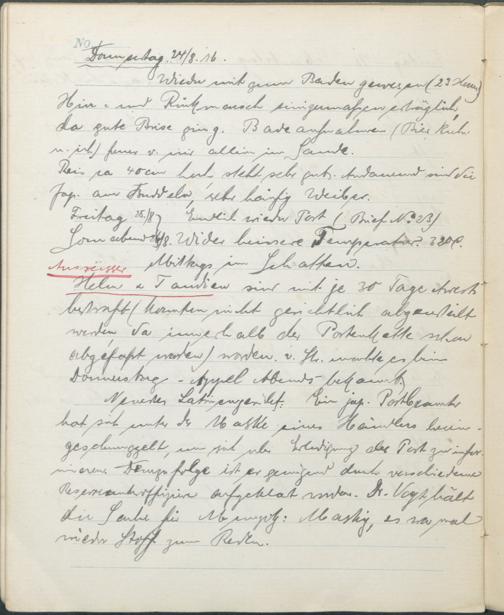 No.
Donnerstag 24/8.16.
Wieder mit zum Baden gewesen (23 Xxx)
Hin- und Rückmarsch einigermaßen erträglich,
da gute Brise ging. Badeaufnahmen (
u. ich) ferner v. mir allein im Sande.
Reis ca 40 cm hoch steht sehr gut. Andauernd sind die
Jap. am Buddeln, sehr häufig Weiber.
Freitag 25/8. Endlich wieder Post (Brief No 23)
Sonnabend 26/8. Wieder heissere Temperatur. 32°C.
Ausreisser Mittags im Schatten.
Helm & Tandien sind mit je 30 Tage Arrest
bestraft (konnten nicht gerichtlich abgeurteilt
werden da innerhalb der Postenkette schon
abgefaßt worden) worden. v. St. machte es beim
Donnerstag-Appell Abends bekannt.
Neuestes Latrinengerücht: Ein jap. Postbeamter
hat sich unter der Maske eines Händlers herein-
geschmuggelt, um sich über Erledigung der Post zu infor-
mieren. Demzufolge ist er genügend durch verschiedene
Reserveunteroffiziere aufgeklärt worden. Dr. Vogt hält
die Sache für Mumpitz: Massig, es war mal
wieder Stoff zum Reden.